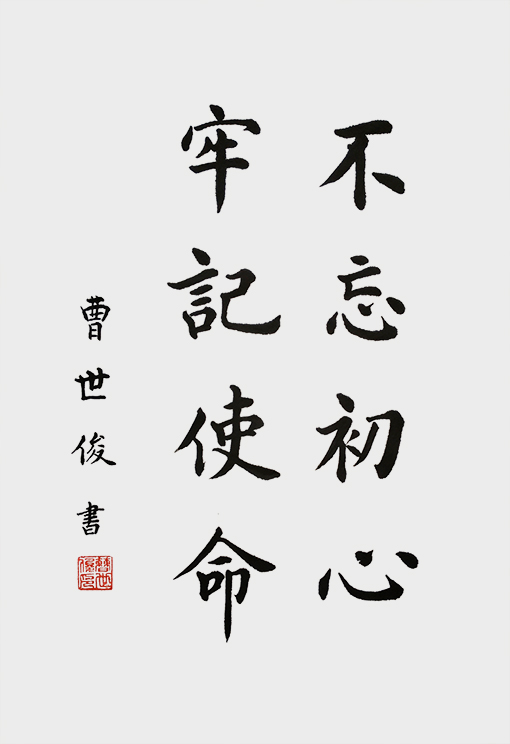 不忘初心
牢記使命
曹世俊書
曹世俊印